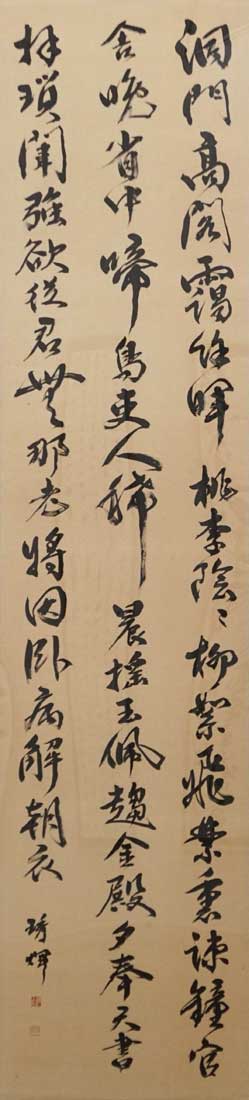 洞門高閣靄餘暉桃李陰々柳絮飛禁裏疎鐘官
舍晚省中啼鳥吏人稀晨搖玉佩趨金殿夕奉天書
拜瑣闈強欲從君無那老將因臥病解朝衣